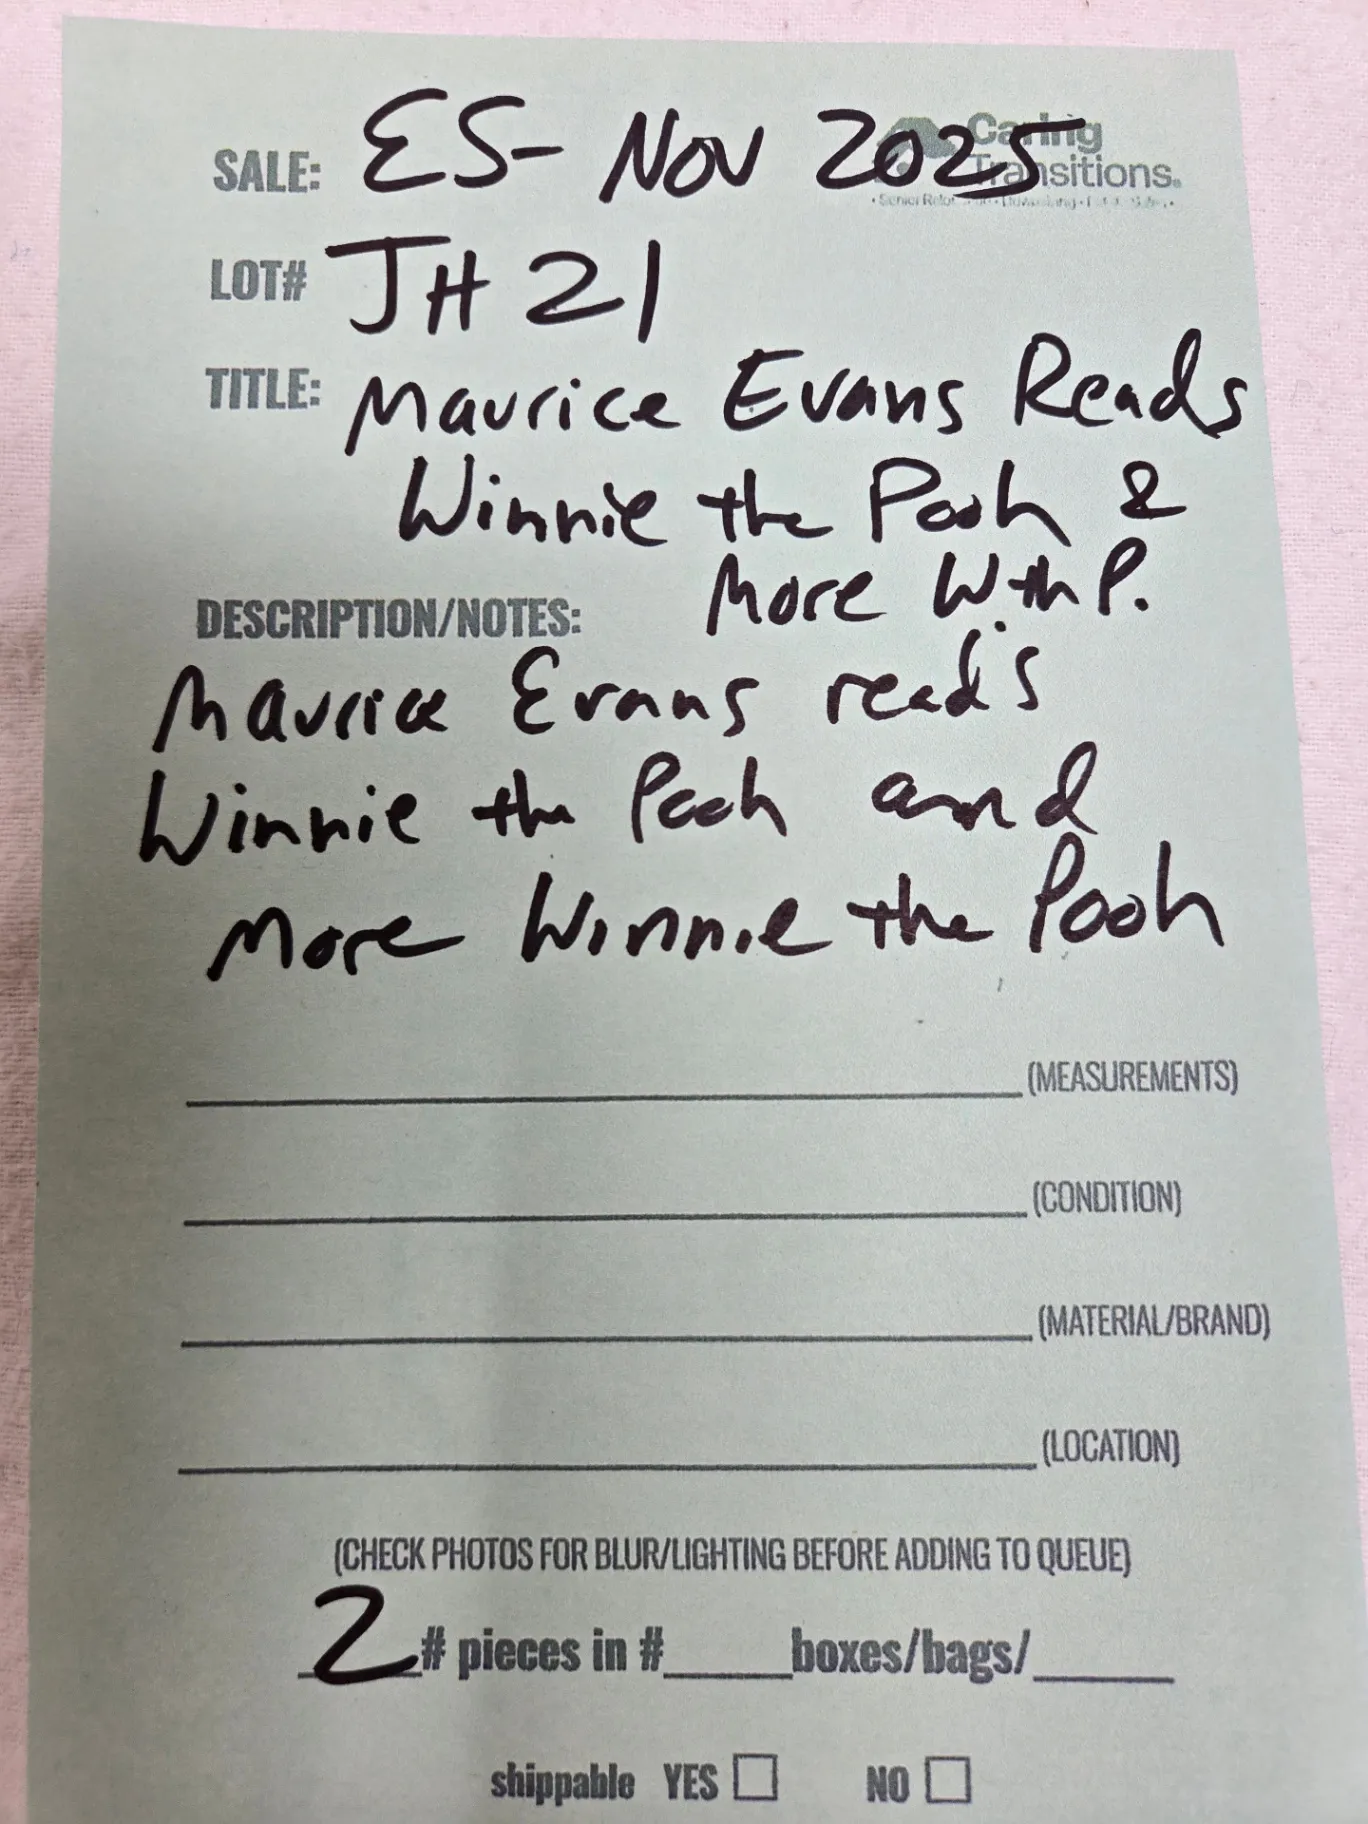 SALE: ES- Nov 2025
Caring
Transitions.
LOT# JH 21
TITLE: Maurice Evans Reads
Winnie the Pooh &
More WthP.
DESCRIPTION/NOTES:
Maurice Evans reads
Winnie the Pooh and
More Winnie the Pooh
(MEASUREMENTS)
(CONDITION)
(MATERIAL/BRAND)
(LOCATION)
(CHECK PHOTOS FOR BLUR/LIGHTING BEFORE ADDING TO QUEUE)
2 # pieces in #_____boxes/bags/_____
shippable YES ☐ NO ☐